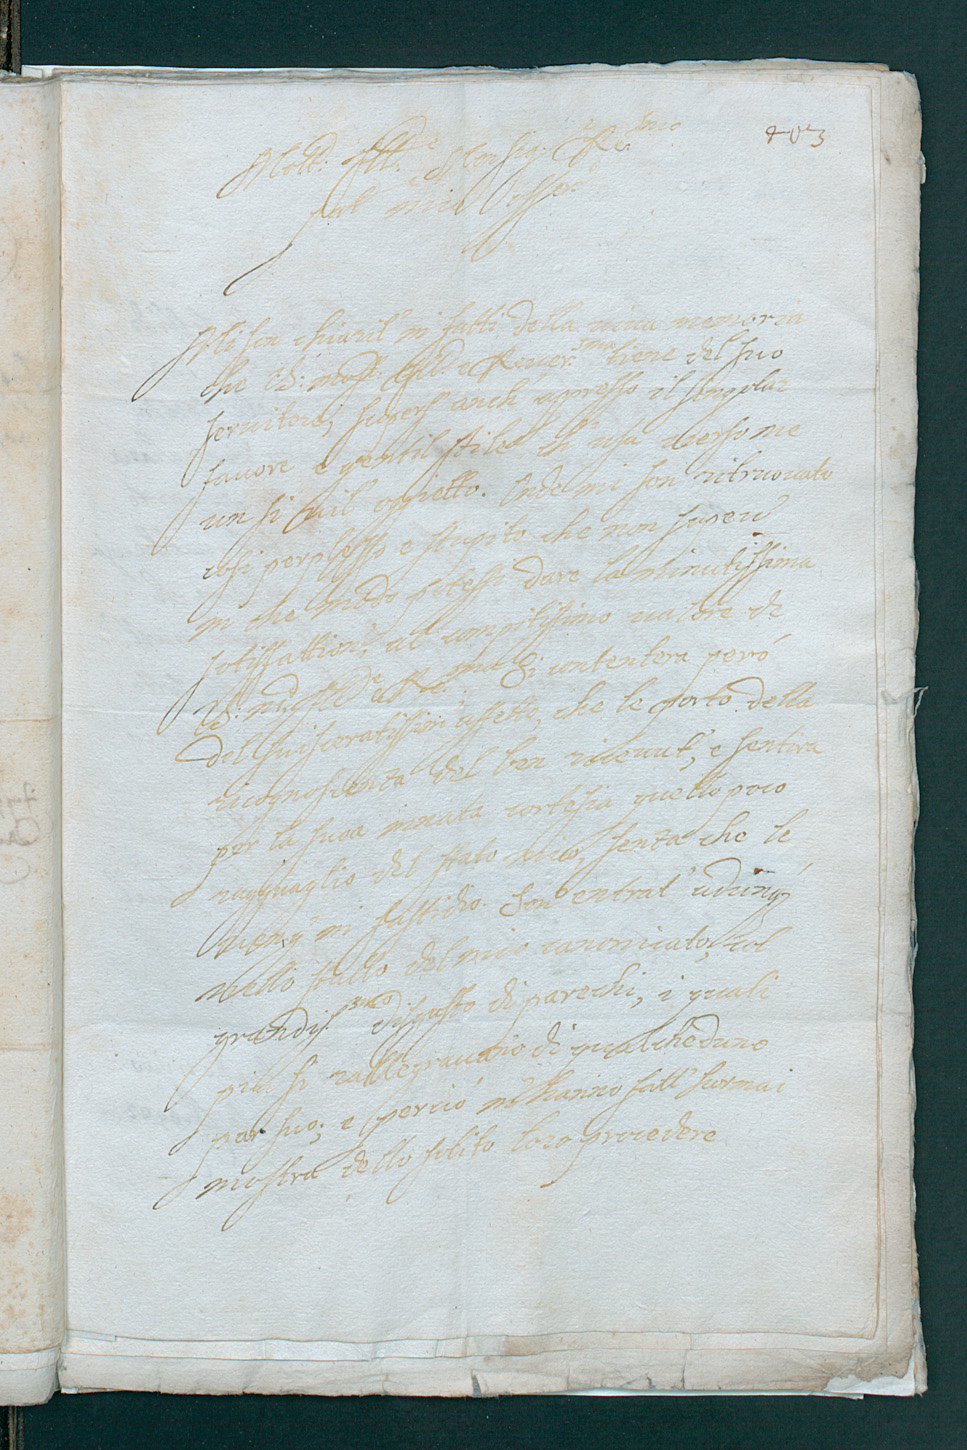 403
Molt: Ill.e Monsig: Re.mo
mio Oss.o
Mi son chiarit' in fatti della viva memoria
che V.S: molt: Ill: e Rever.ma tiene del suo
servitore, appresso il singolar
favore e gentil stile ch' usa verso me
un si vil oggietto. Onde mi son ritruovato
così perplesso e stupito che non saperei
in che modo potessi dare la minutissima
sotisfattion' al compitissimo valore di
V.S: m. Ill.e e Re.ma Si contenterà però
del svisceratissim' affetto, che le porto della
ricognoscenza del ben ricevut', e sentira
per la suoa innata cortesia quello poco
ragguaglio del stato mio, senza che le
in fastidio. Son entrat'
nello stallo del mio canonicato, col
grandis.mo disgusto di parechi, i quali
più si rallegravano di qualcheduno
par suo; e perciò m'hanno fatt' hormai
mostra dello solito loro procedere